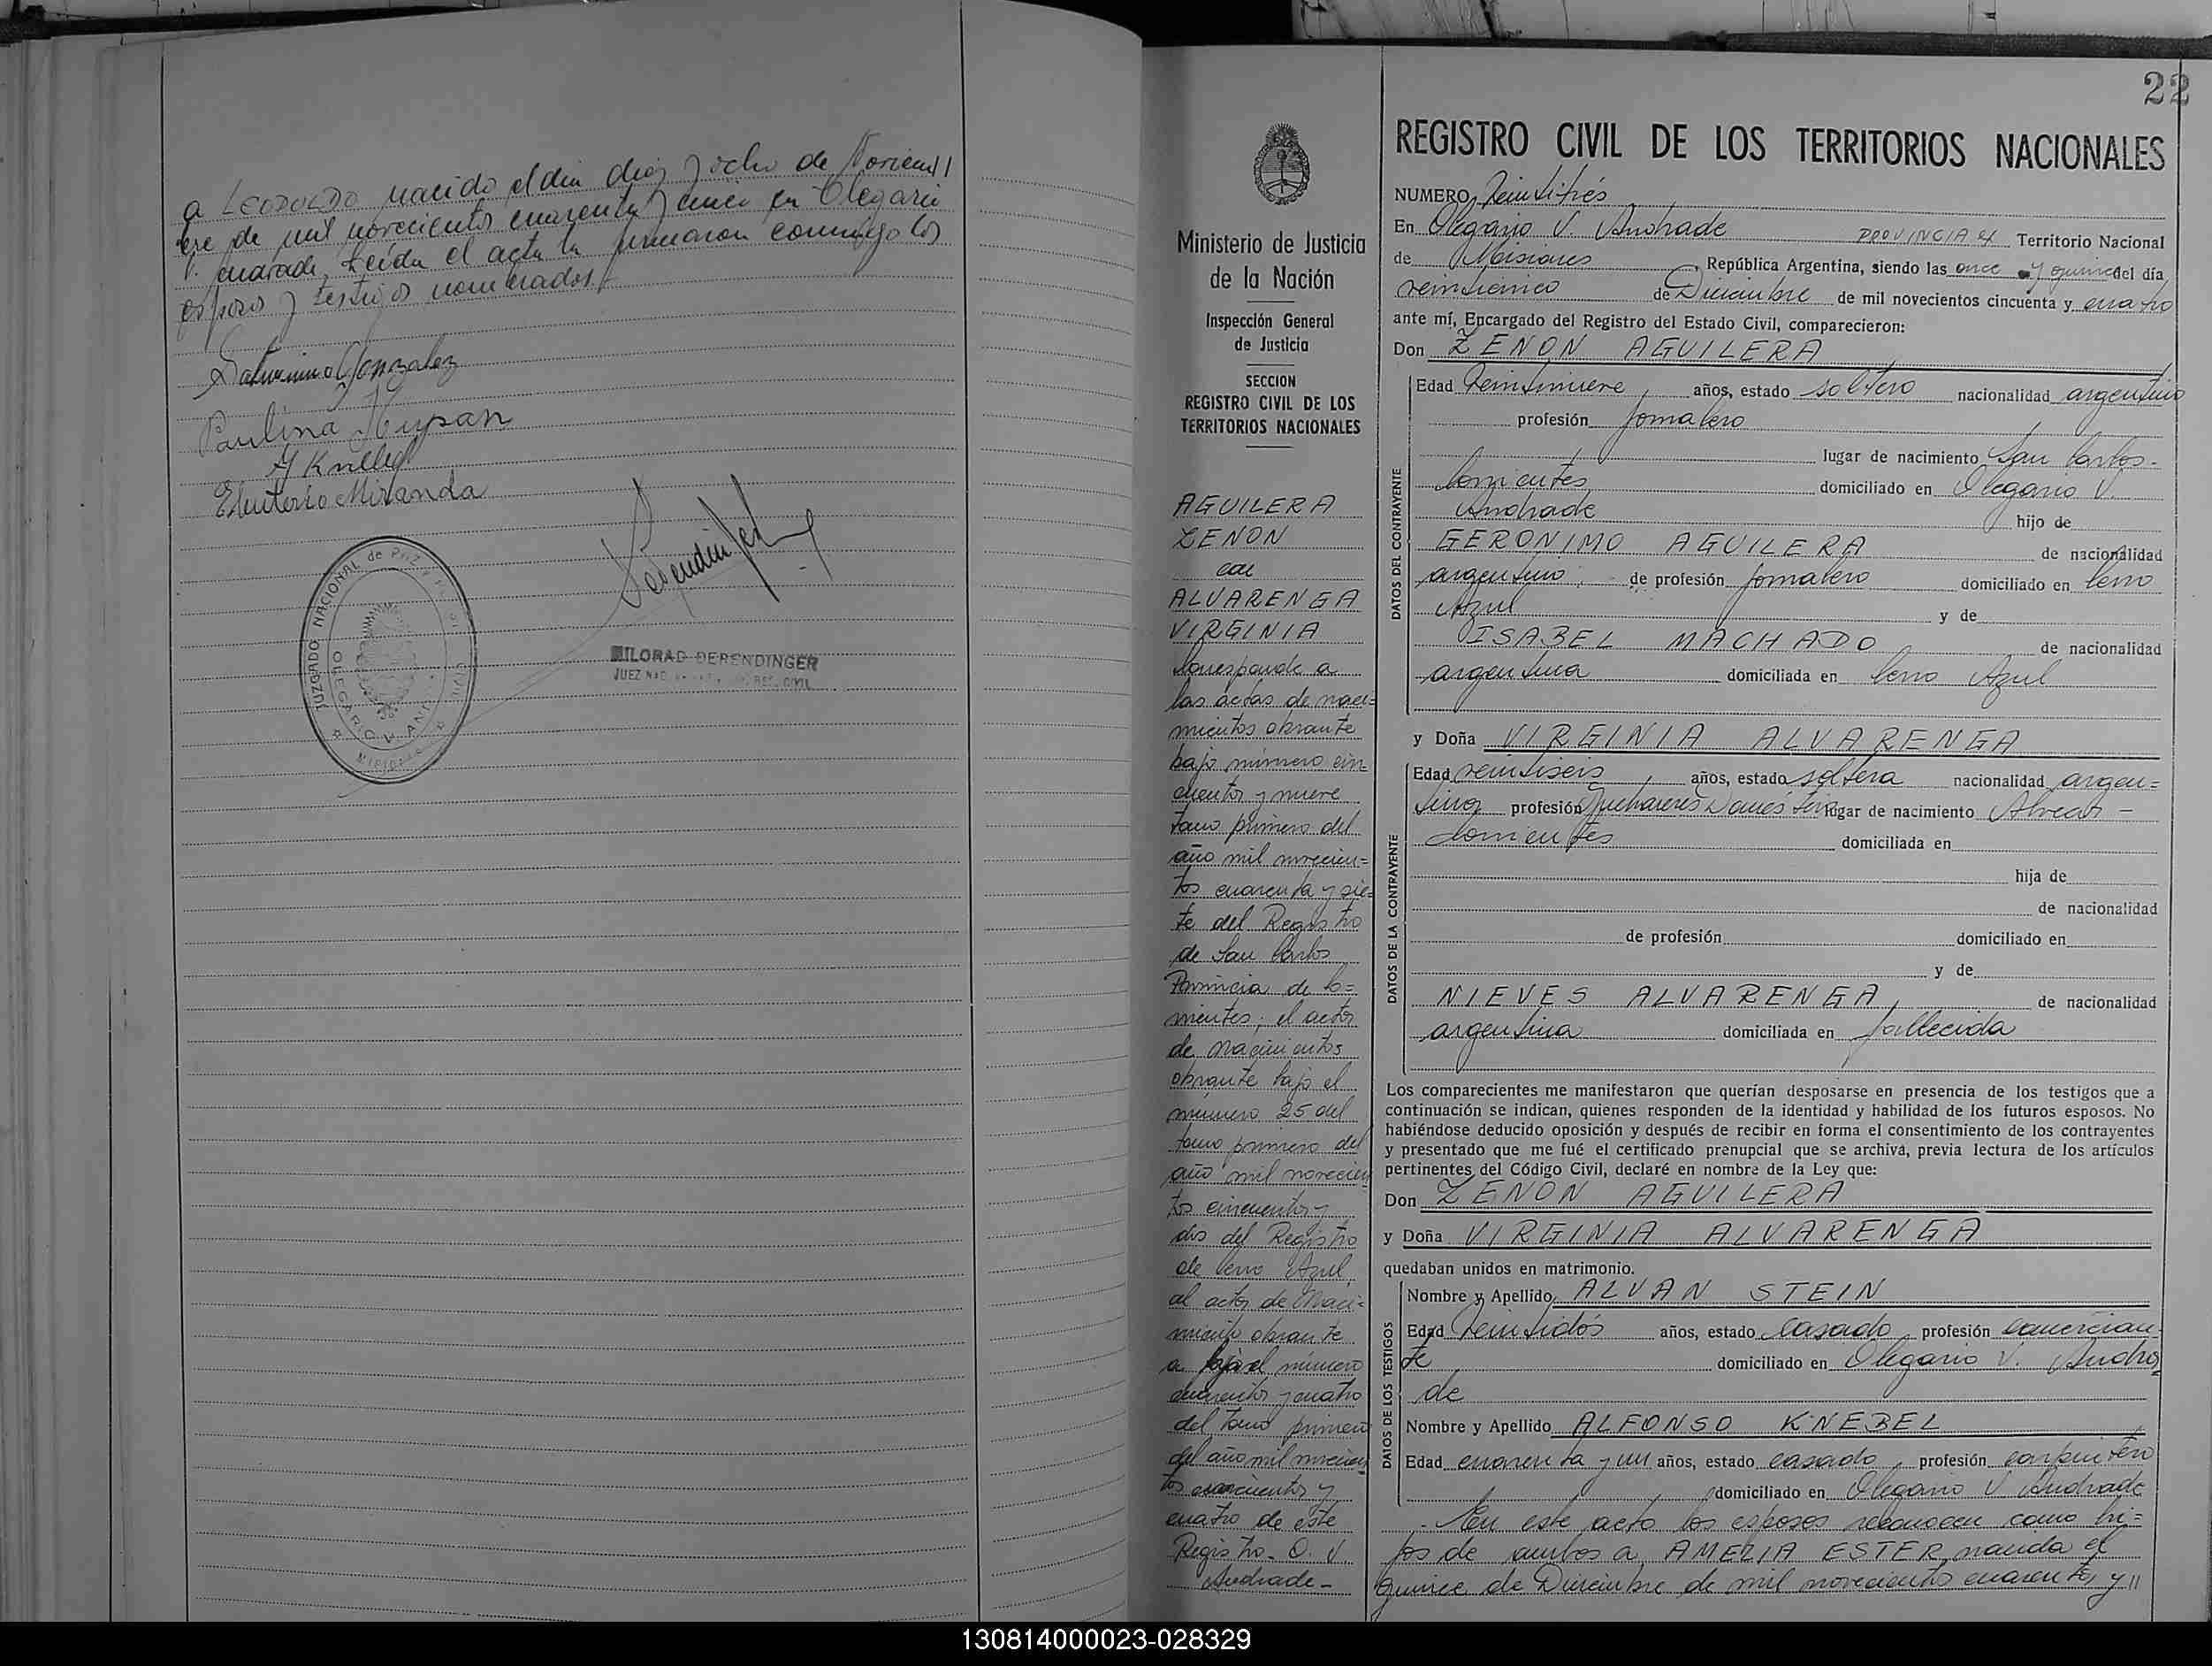 a LEOPOLDO nacido el dia diez y ocho de Noviem//
bre de mil novecientos cuarenta y cinco en Olegario
V. Andrade, Leida el acta la firmaron conmigo los
esposos y testigos nombrados.
Saturnino Gonzalez
Paulina Hupan
Eleuterio Miranda
JUZGADO NACIONAL de PAZ
OLEGARIO V. AND
MILORAD DERENDINGER
JUEZ REG. CIVIL
Ministerio de Justicia
de la Nación
Inspección General
de Justicia
SECCION
REGISTRO CIVIL DE LOS
TERRITORIOS NACIONALES
AGUILERA
ZENON
con
ALVARENGA
VIRGINIA
Corresponde a
las actas de naci=
mientos obrante
bajo número cin
cuenta y nueve
tomo primero del
año mil novecien=
tos cuarenta y sie=
te del Registro
de San Carlos
Provincia de Co=
rrientes; el acta
de Nacimientos
obrante bajo el
número 25 del
tomo primero del
año mil novecien
tos cincuenta y
dos del Registro
de Cerro Azul,
al acta de Naci=
miento obrante
a bajo el número
cuarenta y cuatro
del tomo primero
del año mil novecien
tos cincuenta y
cuatro de este
Registro. O. V
Andrade-
22
REGISTRO CIVIL DE LOS TERRITORIOS NACIONALES
NUMERO Veintitrés
En Olegario V. Andrade PROVINCIA ex Territorio Nacional
de Misiones República Argentina, siendo las once y quince del día
veinticinco de Diciembre de mil novecientos cincuenta y cuatro
ante mí, Encargado del Registro del Estado Civil, comparecieron:
Don ZENON AGUILERA
DATOS DEL CONTRAYENTE
Edad Veintinueve, años, estado soltero nacionalidad argentino
profesión jornalero
lugar de nacimiento San Carlos-
Corrientes domiciliado en Olegario V.
Andrade hijo de
GERONIMO AGUILERA de nacionalidad
argentino, de profesión jornalero domiciliado en Cerro
Azul y de
ISABEL MACHADO de nacionalidad
argentina domiciliada en Cerro Azul
y Doña VIRGINIA ALVARENGA
DATOS DE LA CONTRAYENTE
Edad veintiseis, años, estado soltera nacionalidad argen=
tina profesión Quehaceres Domésticos lugar de nacimiento Alvear-
Corrientes domiciliada en
hija de
de nacionalidad
de profesión domiciliado en
y de
NIEVES ALVARENGA, de nacionalidad
argentina domiciliada en fallecida
Los comparecientes me manifestaron que querían desposarse en presencia de los testigos que a
continuación se indican, quienes responden de la identidad y habilidad de los futuros esposos. No
habiéndose deducido oposición y después de recibir en forma el consentimiento de los contrayentes
y presentado que me fué el certificado prenupcial que se archiva, previa lectura de los artículos
pertinentes del Código Civil, declaré en nombre de la Ley que:
Don ZENON AGUILERA
y Doña VIRGINIA ALVARENGA
quedaban unidos en matrimonio.
DATOS DE LOS TESTIGOS
Nombre y Apellido ALVAN STEIN
Edad Veintidós años, estado Casado, profesión comercian
te domiciliado en Olegario V. Andra
de
Nombre y Apellido ALFONSO KNEBEL
Edad cuarenta y un años, estado casado, profesión carpintero
domiciliado en Olegario V. Andrade
- En este acto los esposos reconocen como hi=
jos de ambos a, AMELIA ESTER, nacida el
quince de Diciembre de mil novecientos cuarenta y //
130814000023-028329